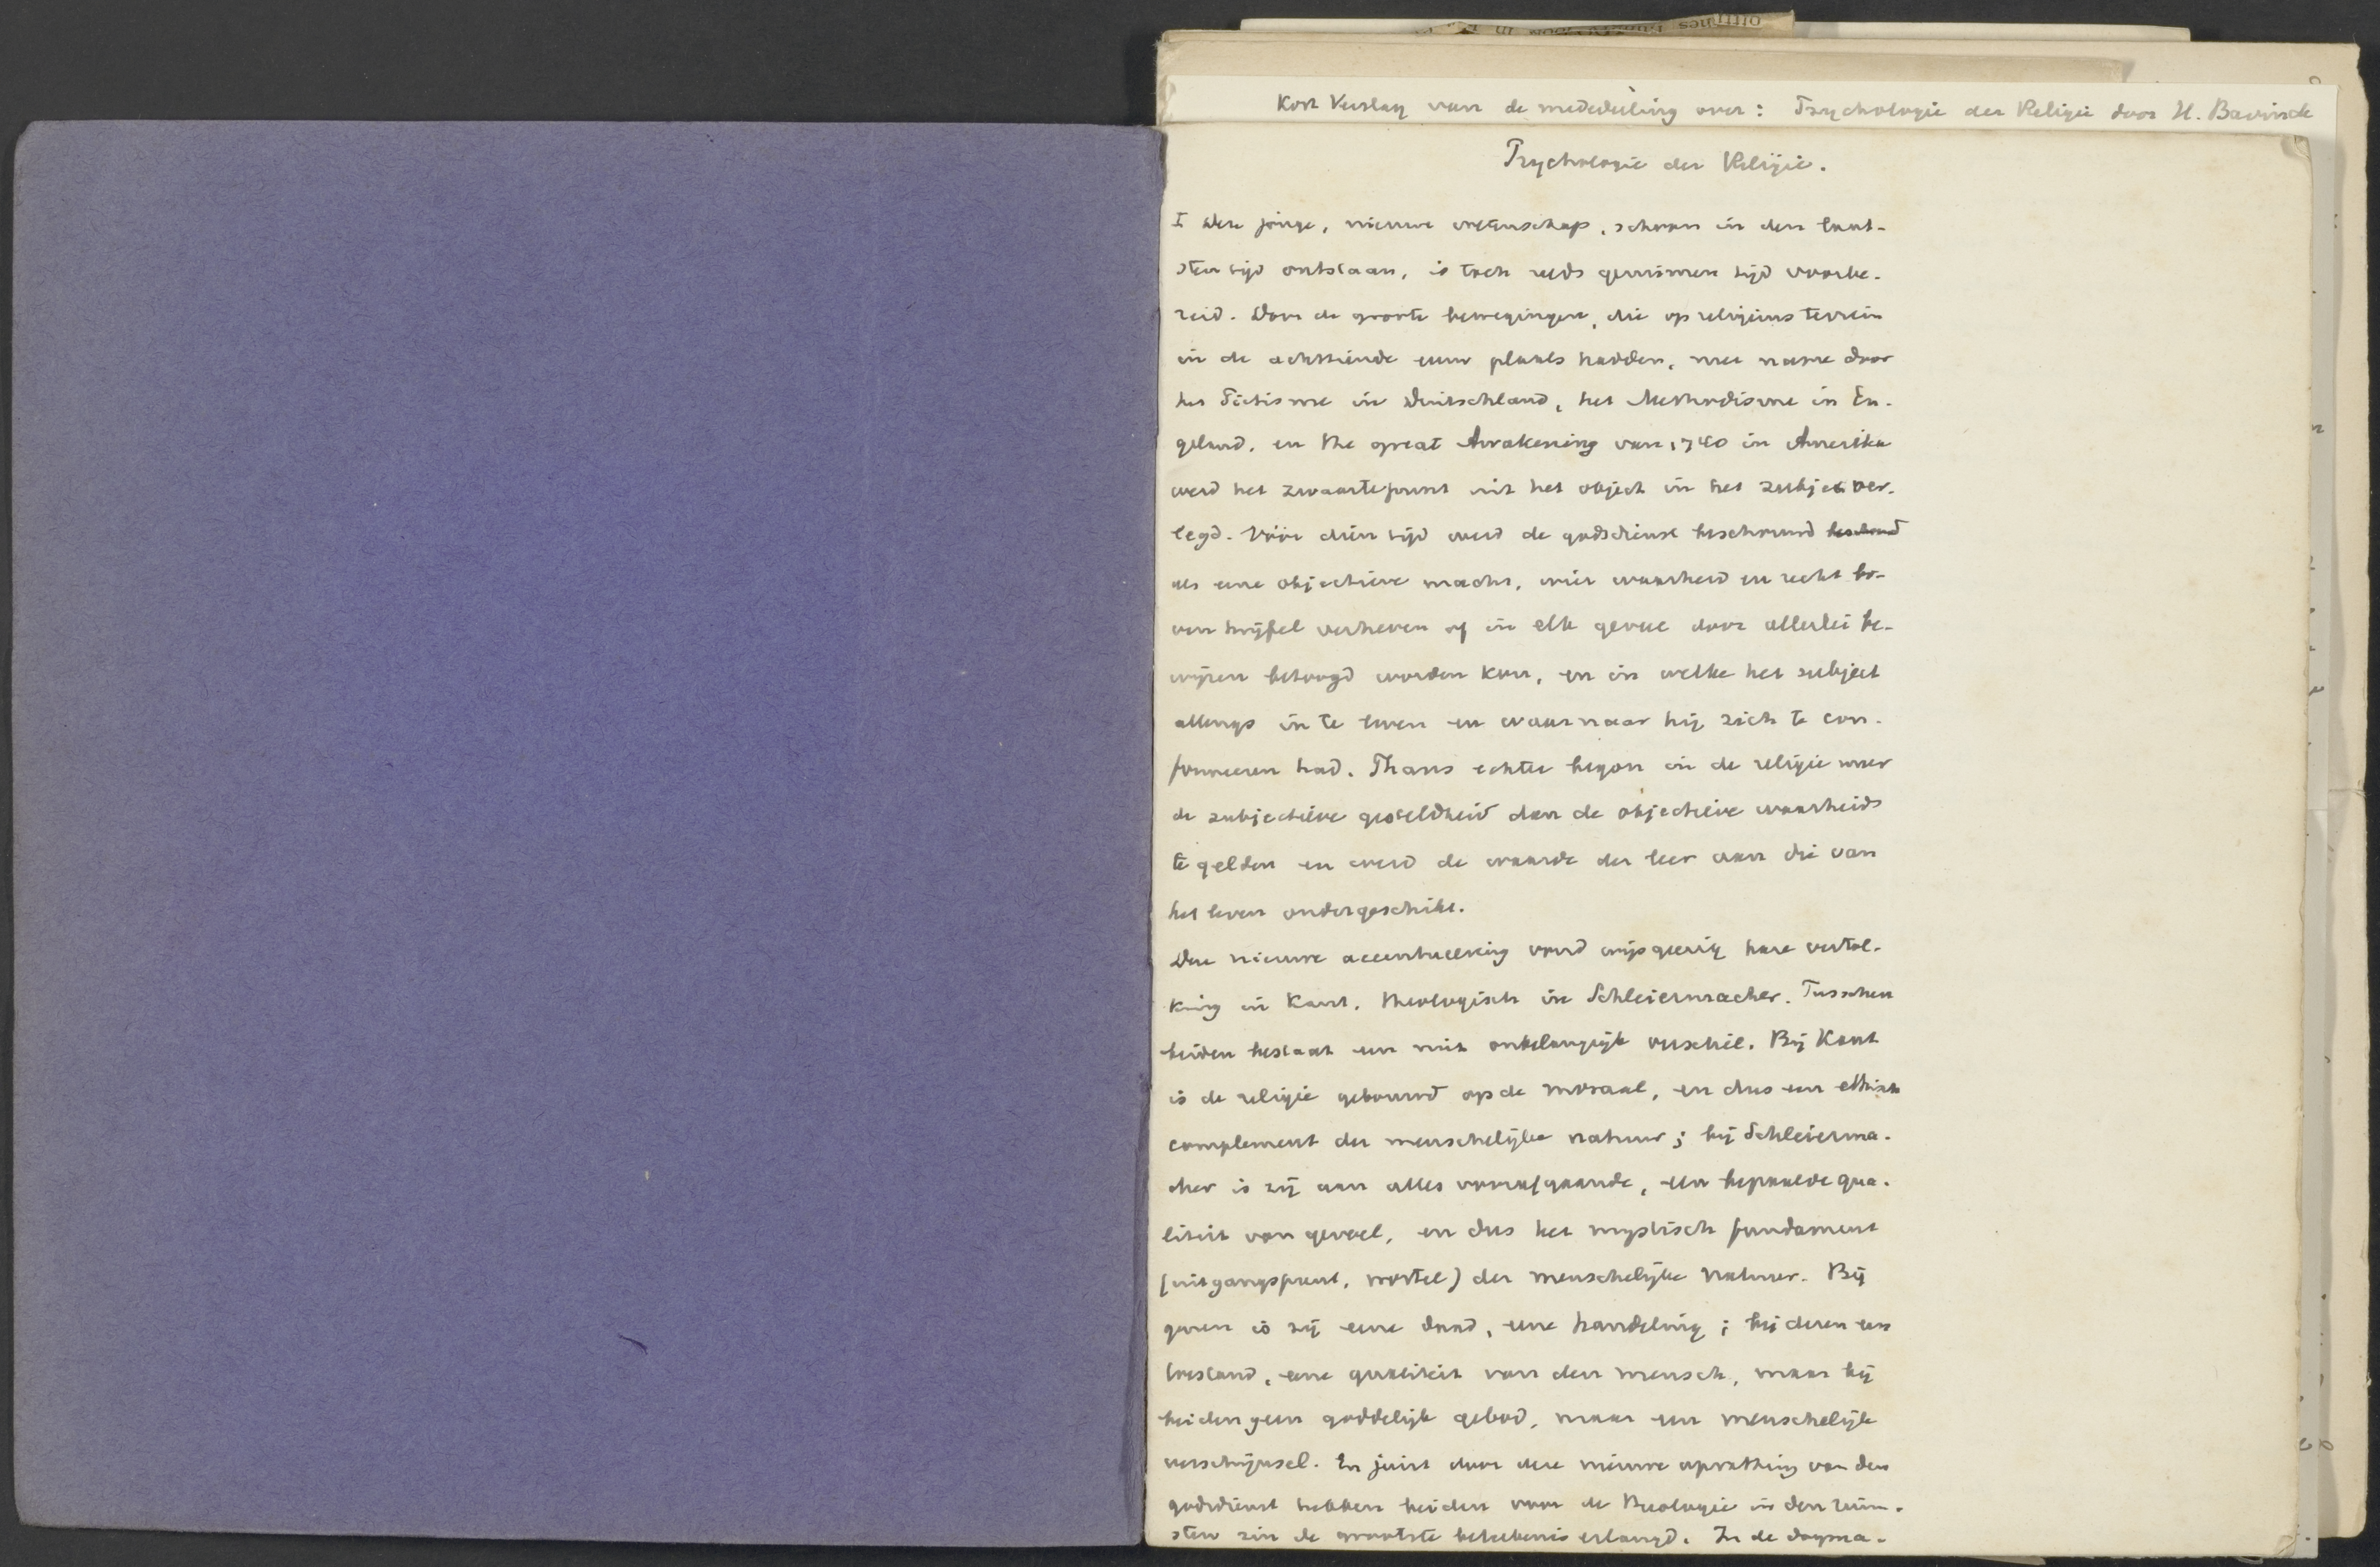 Kort Verslag van de mededeeling over: Psychologie der Religie door H. Bavinck
Psychologie der Religie.
I Deze jonge, nieuwe wetenschap, schoon in den laat-
sten tijd ontstaan, is toch reeds geruimen tijd voorbe-
reid. Door de groote bewegingen, die op religieus terrein
in de achttiende eeuw plaats hadden, met name door
het Piëtisme in Duitschland, het Methodisme in En-
geland, en the great Awakening van 1740 in Amerika
werd het zwaartepunt uit het object in het subject ver-
legd. Vóór dien tijd werd de godsdienst beschouwd
als eene objectieve macht, wier waarheid en recht bo-
ven twijfel verheven of in elk geval door allerlei be-
wijzen betoogd worden kon, en in welke het subject
allengs in te leven en waarnaar hij zich te con-
formeeren had. Thans echter begon in de religie meer
de subjectieve gesteldheid dan de objectieve waarheid
te gelden en werd de waarde der leer aan die van
het leven ondergeschikt.
Deze nieuwe accentueering vond wijsgeerig hare vertol-
king in Kant, theologisch in Schleiermacher. Tusschen
beiden bestaat een niet onbelangrijk verschil. Bij Kant
is de religie gebouwd op de moraal, en dus een ethisch
complement der menschelijke natuur; bij Schleierma-
cher is zij aan alles voorafgaande, een bepaalde qua-
liteit van gevoel, en dus het mystisch fundament
(uitgangspunt, wortel) der menschelijke natuur. Bij
genen is zij eene daad, eene handeling; bij dezen een
toestand, eene qualiteit van den mensch, maar bij
beiden geen goddelijk gebod, maar een menschelijk
verschijnsel. En juist door deze nieuwe opvatting van den
godsdienst hebben beiden voor de theologie in den ruim-
sten zin de grootste beteekenis erlangd. In de dogma-